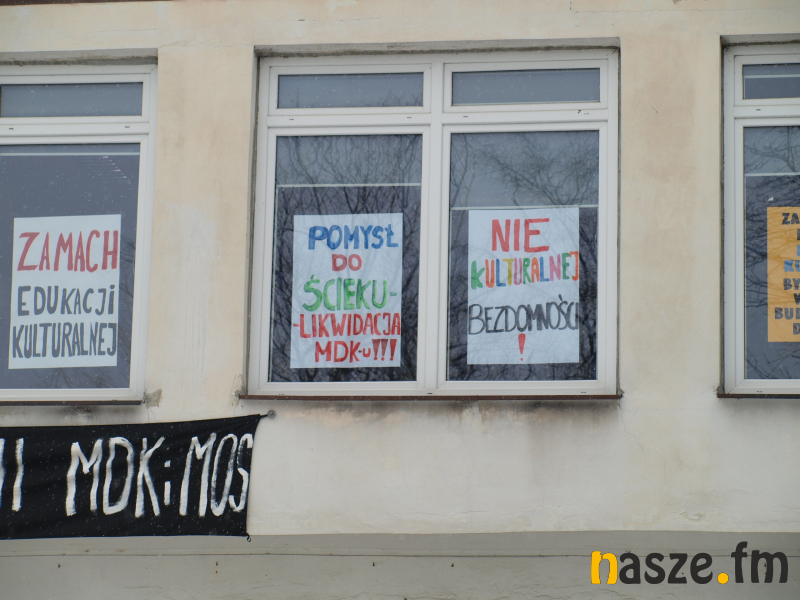 ZAMACH
EDUKACJI
KULTURALNEJ
POMYSŁ
DO
ŚCIEKU-
-LIKWIDACJA
MDK-u!!!
NIE
KULTURALNEJ
BEZDOMNOŚCI
!
ZA
BY
W
BUD
D
MDK i MOS
nasze.fm